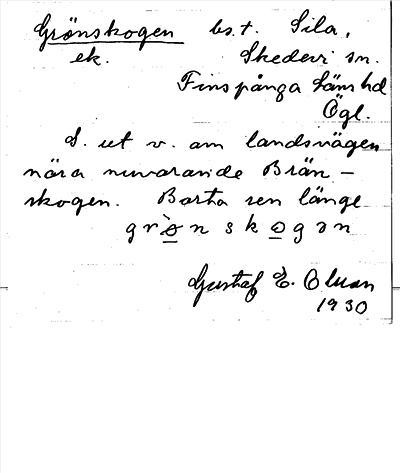 Grönskogen bs. t. Sila,
ek. Skedevi sn.
Finspånga läns hd
Ögl.
S. ut v. om landsvägen
nära nuvarande Brän-
skogen. Borta sen länge
grö̀nskogən
Gustaf E. Olsson
1930